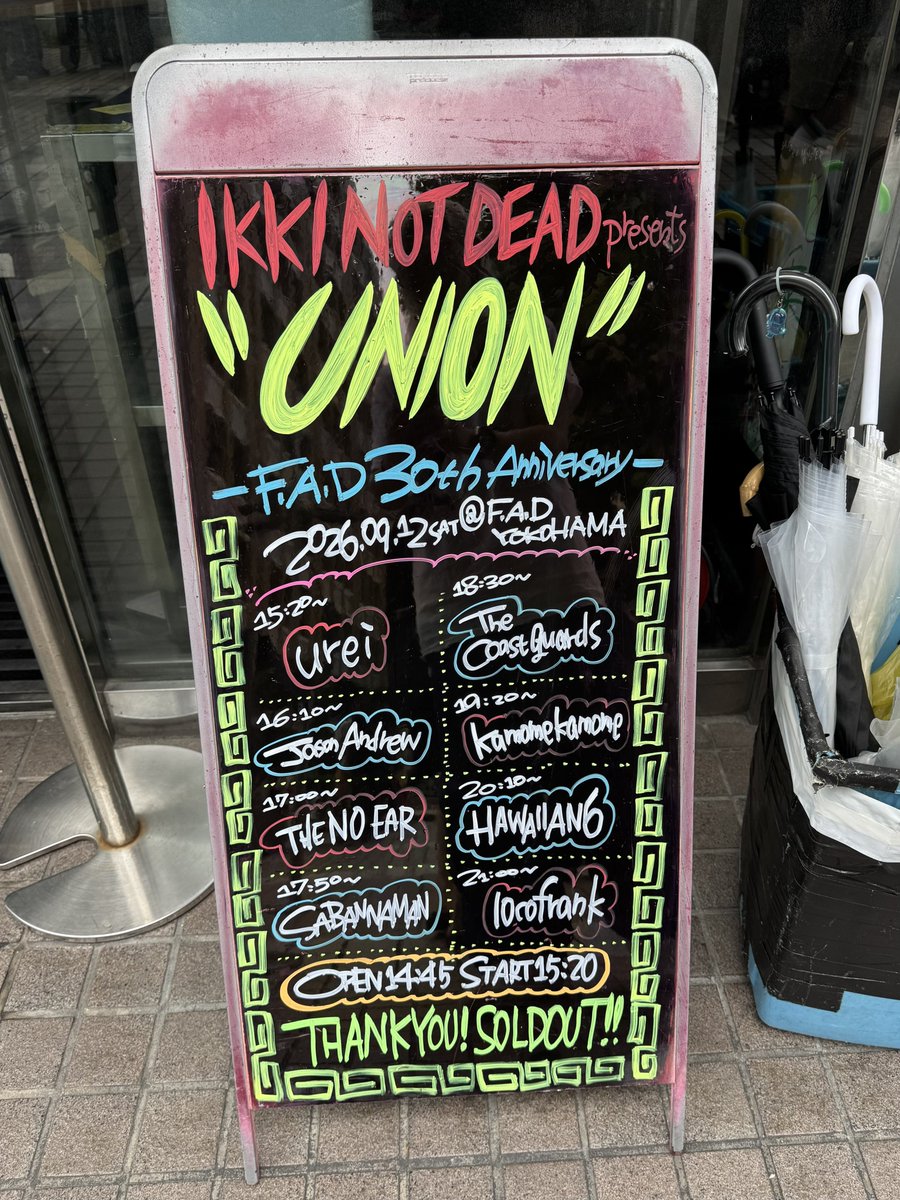 IKKI NOT DEAD presents
"UNION"
-F.A.D 30th Anniversary-
2026.09.12 SAT @ F.A.D YOKOHAMA
15:20~
urei
16:10~
Jason Andrew
17:00~
THE NO EAR
17:50~
SABANNAMAN
18:30~
The Coastguards
19:20~
kamomekamome
20:10~
HAWAIIAN6
21:00~
locofrank
OPEN 14:45 START 15:20
THANK YOU! SOLDOUT!!